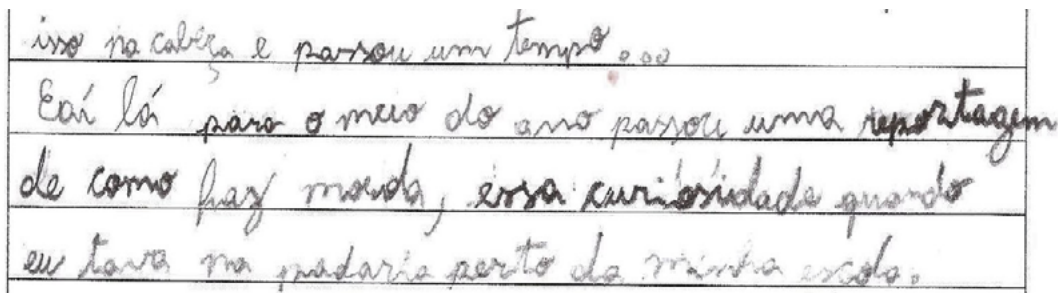 isso na cabeça e passou um tempo...
Eaí lá para o meio do ano passou uma reportagem
de como faz moeda, essa curiósidade quando
eu tava na padaria perto da minha escola.